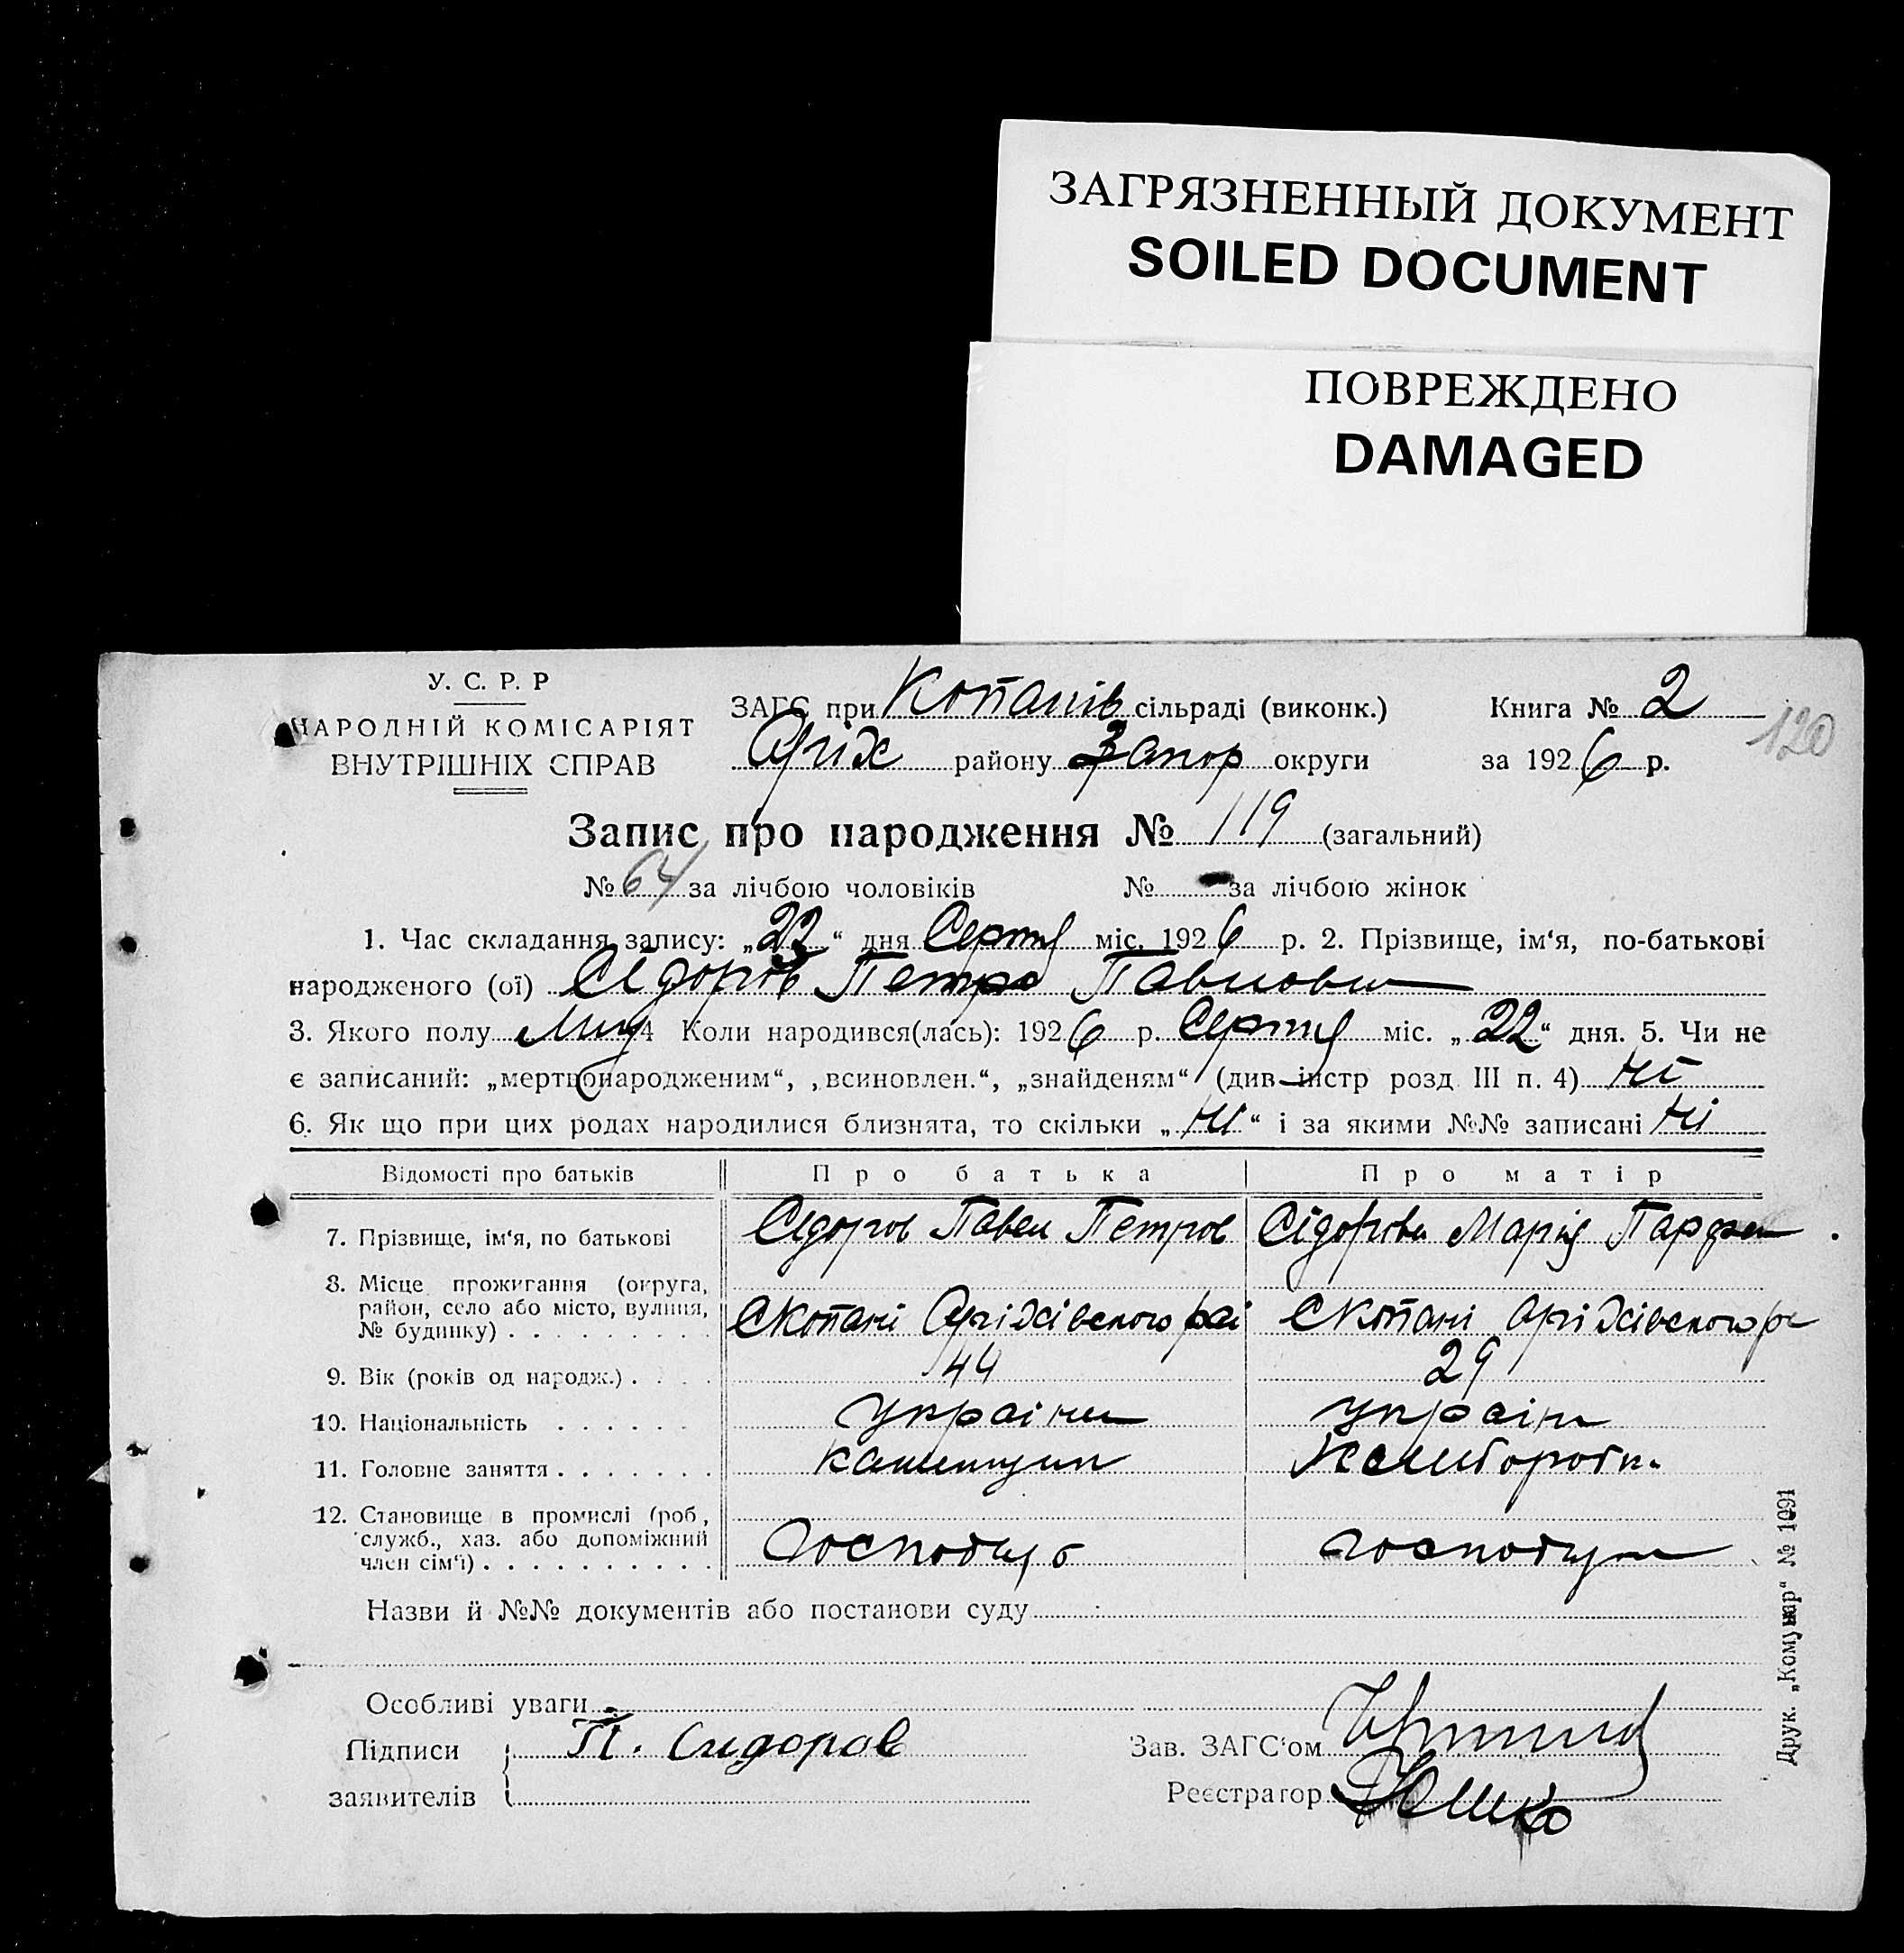 ЗАГРЯЗНЕННЫЙ ДОКУМЕНТ
SOILED DOCUMENT
ПОВРЕЖДЕНО
DAMAGED
У. С. Р. Р
НАРОДНІЙ КОМІСАРІЯТ
ВНУТРІШНІХ СПРАВ
ЗАГС при Копанів сільраді (виконк.)
Оріх району Запор округи
Книга № 2
за 1926 р.
120
Запис про народження № 119 (загальний)
№ 64 за лічбою чоловіків № - за лічбою жінок
1. Час складання запису: „23“ дня Серпня міс. 1926 р. 2. Прізвище, ім‘я, по-батькові
народженого (ої) Сідоров Петро Павлови
3. Якого полу 4 Коли народився(лась): 1926 р. Серпня міс. „22“ дня. 5. Чи не
є записаний: „мертвонародженим“, „всиновлен.“, „знайденям“ (див інстр розд III п. 4) ні
6. Як що при цих родах народилися близнята, то скільки „ні“ і за якими №№ записані ні
Відомості про батьків Про батька Про матір
7. Прізвище, ім‘я, по батькові Сідоров Павел Петров Сідорова Марія Парфен
8. Місце прожигання (округа,
район, село або місто, вулиця,
№ будинку) С Копані Оріхівского рай С Копані Оріхівского ра
9. Вік (років од народж.) 44 29
10. Національність україн україн
11. Головне заняття
12. Становище в промислі (роб,
служб., хаз. або допоміжний
член сім‘ї)
Назви й №№ документів або постанови суду
Особливі уваги
Підписи П. Сидоров Зав. ЗАГС‘ом
заявителів Реєстратор
Друк. „Комунар“ № 1091